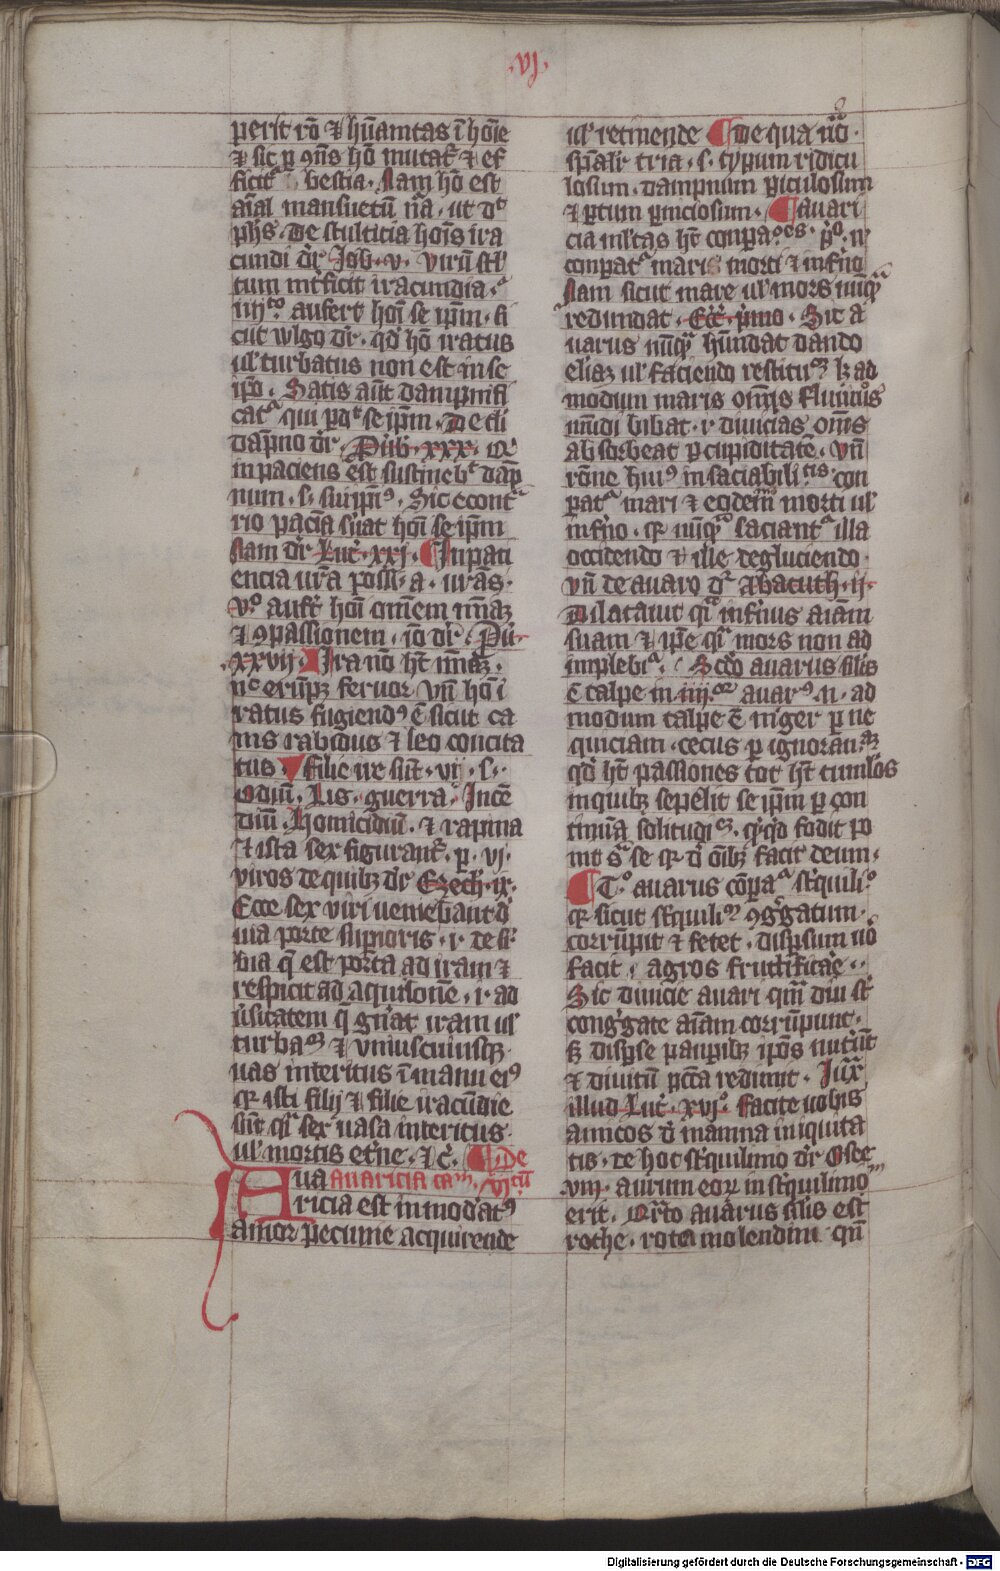 .vj.
perit rō ⁊ hūanitas ī hoīe
⁊ sic ꝑ ꝯn̄s hō mutat̉ ⁊ ef
ficit᷑ bestia . Nam hō est
aīal mansuetū nā . ut dt
ph̄s . De stulticia hoīs ira
cundi dr̄ Iob . v . virū stl̉
tum int̉ficit iracundia .
iiijto aufert hoī se ip̄m . si
cut wlgo dr̄ . qd̉ hō iratus
ul̉ turbatus non est in se
ip̄o . Satis aūt dampnifi
cat᷑ qui ꝑdt se ip̄m . De tli
dāpno dr̄ . Pūb . xxx . Q̉
inpaciens est sustinebt dāp
num . s . sui ip̄ius . Sic econt᷑
rio pacīa s̉uat hoī se ip̄m
Nam dr̄ Luc̉ . xxj . ¶ In pati
encia vr̄a poss . a . vrās .
vo auf̉t hoī om̄em mīaꝫ
⁊ ꝯpassionem . iō dr̄ . Pū .
xxvij . Ira nō ht̄ mīaꝫ .
nc erūpꝫ feruor vn̄ hō i
ratus fugiendus ē sicut ca
nis rabidus ⁊ leo concita
tus . Filie ire sūt . vij . s .
Odiū . Lis . guerra . Incē
diū . Homicidiū . ⁊ rapina
Et ista sex figurant̉ . ꝑ . vj .
viros de quibꝫ dr̄ Ezech̉ . ix .
Ecce sex viri veniebant d̉
via porte suꝑioris . i . de su
bia q̄ est porta ad iram ⁊
respicit ad aquilonē . i . ad
ꝗ gn̉at iram ul̉
⁊ vniuscuiusqꝫ
uas interitus ī manu eius
qr̉ isti filij ⁊ filie iracūdie
sūt q̄i sex vasa interitus .
ul̉ mortis et̉ne . ⁊ c̉ . ¶ De
Aua auaricia cam . vjtū
ricia est inmod̉atus
amor pecunie acquirende
ul̉ retinende ¶ De qua
sp̄alr̉ tria . s . typum ridicu
losum . dampnum ꝑiculosum
⁊ ꝑtum ꝑniciosum . ¶ auari
cia ml̉tas ht̄ conpaōes . po . n̉
conpat᷑ maris morti ⁊ inf̉no
Nam sicut mare ul̉ mors nūqᷓ
redundat . Ecc̉ . p̉mo . Sic a
uarus nūqᷓ hūndat dando
eliaꝫ ul̉ faciendo restituꝫ lꝫ ad
modum maris om̄s fluuios
mūdi bibat . i . diuicias om̄s
absorbeat ꝑ cupiditatē . vn̄
rōne hui9 insaciabilitis . con
pat᷑ mari ⁊ eodem morti ul̉
inf̉no . qr̉ nūqᷓ saciant᷑ illa
occidendo ⁊ ille degluciendo .
vn̄ de auaro dr̄ Abacuch . ij .
Dilatauit q̄i inf̉nus aīam
suam ⁊ ip̄e q̄i mors non ad
implebit᷑ . Scdo auarus silis
ē talpe in iiij.or auarus . n . ad
modum talpe ē niger ꝑ ne
quiciam . cecus ꝑ ignoranciaꝫ
qd̉ ht̄ passiones tot ht̄ tumlos
in quibꝫ sepelit se ip̄m ꝑ con
tinuā solitudīꝫ . q̉cqd̉ fodit po
nit sr̄ se qr̉ d̉ oībꝫ facit deum .
¶ T̉o auarus cōpat᷑ st̉quilio
qr̉ sicut st̉quiliū ꝯg̉gatum .
corrūpit ⁊ fetet . disꝑsum uō
facit . agros fructificāe .
Sic diuicie auari qm̄ diu st̄
cong̉gate aīam corrūpunt .
sꝫ disꝑse pauꝑibꝫ ip̄os nut̉iūt
⁊ diuitū pcc̄a redimūt . Iux̄
illud Luc̉ . xvjo . Facite uobis
amicos d̉ mamna iniquita
tis . de hoc st̉quilinio dr̄ Osee
viij . aurum eoꝝ in st̉quilinio
erit . Qr̉to auarus silis est
rothe . rota molendini qn̄
Digitalisierung gefördert durch die Deutsche Forschungsgemeinschaft - DFG